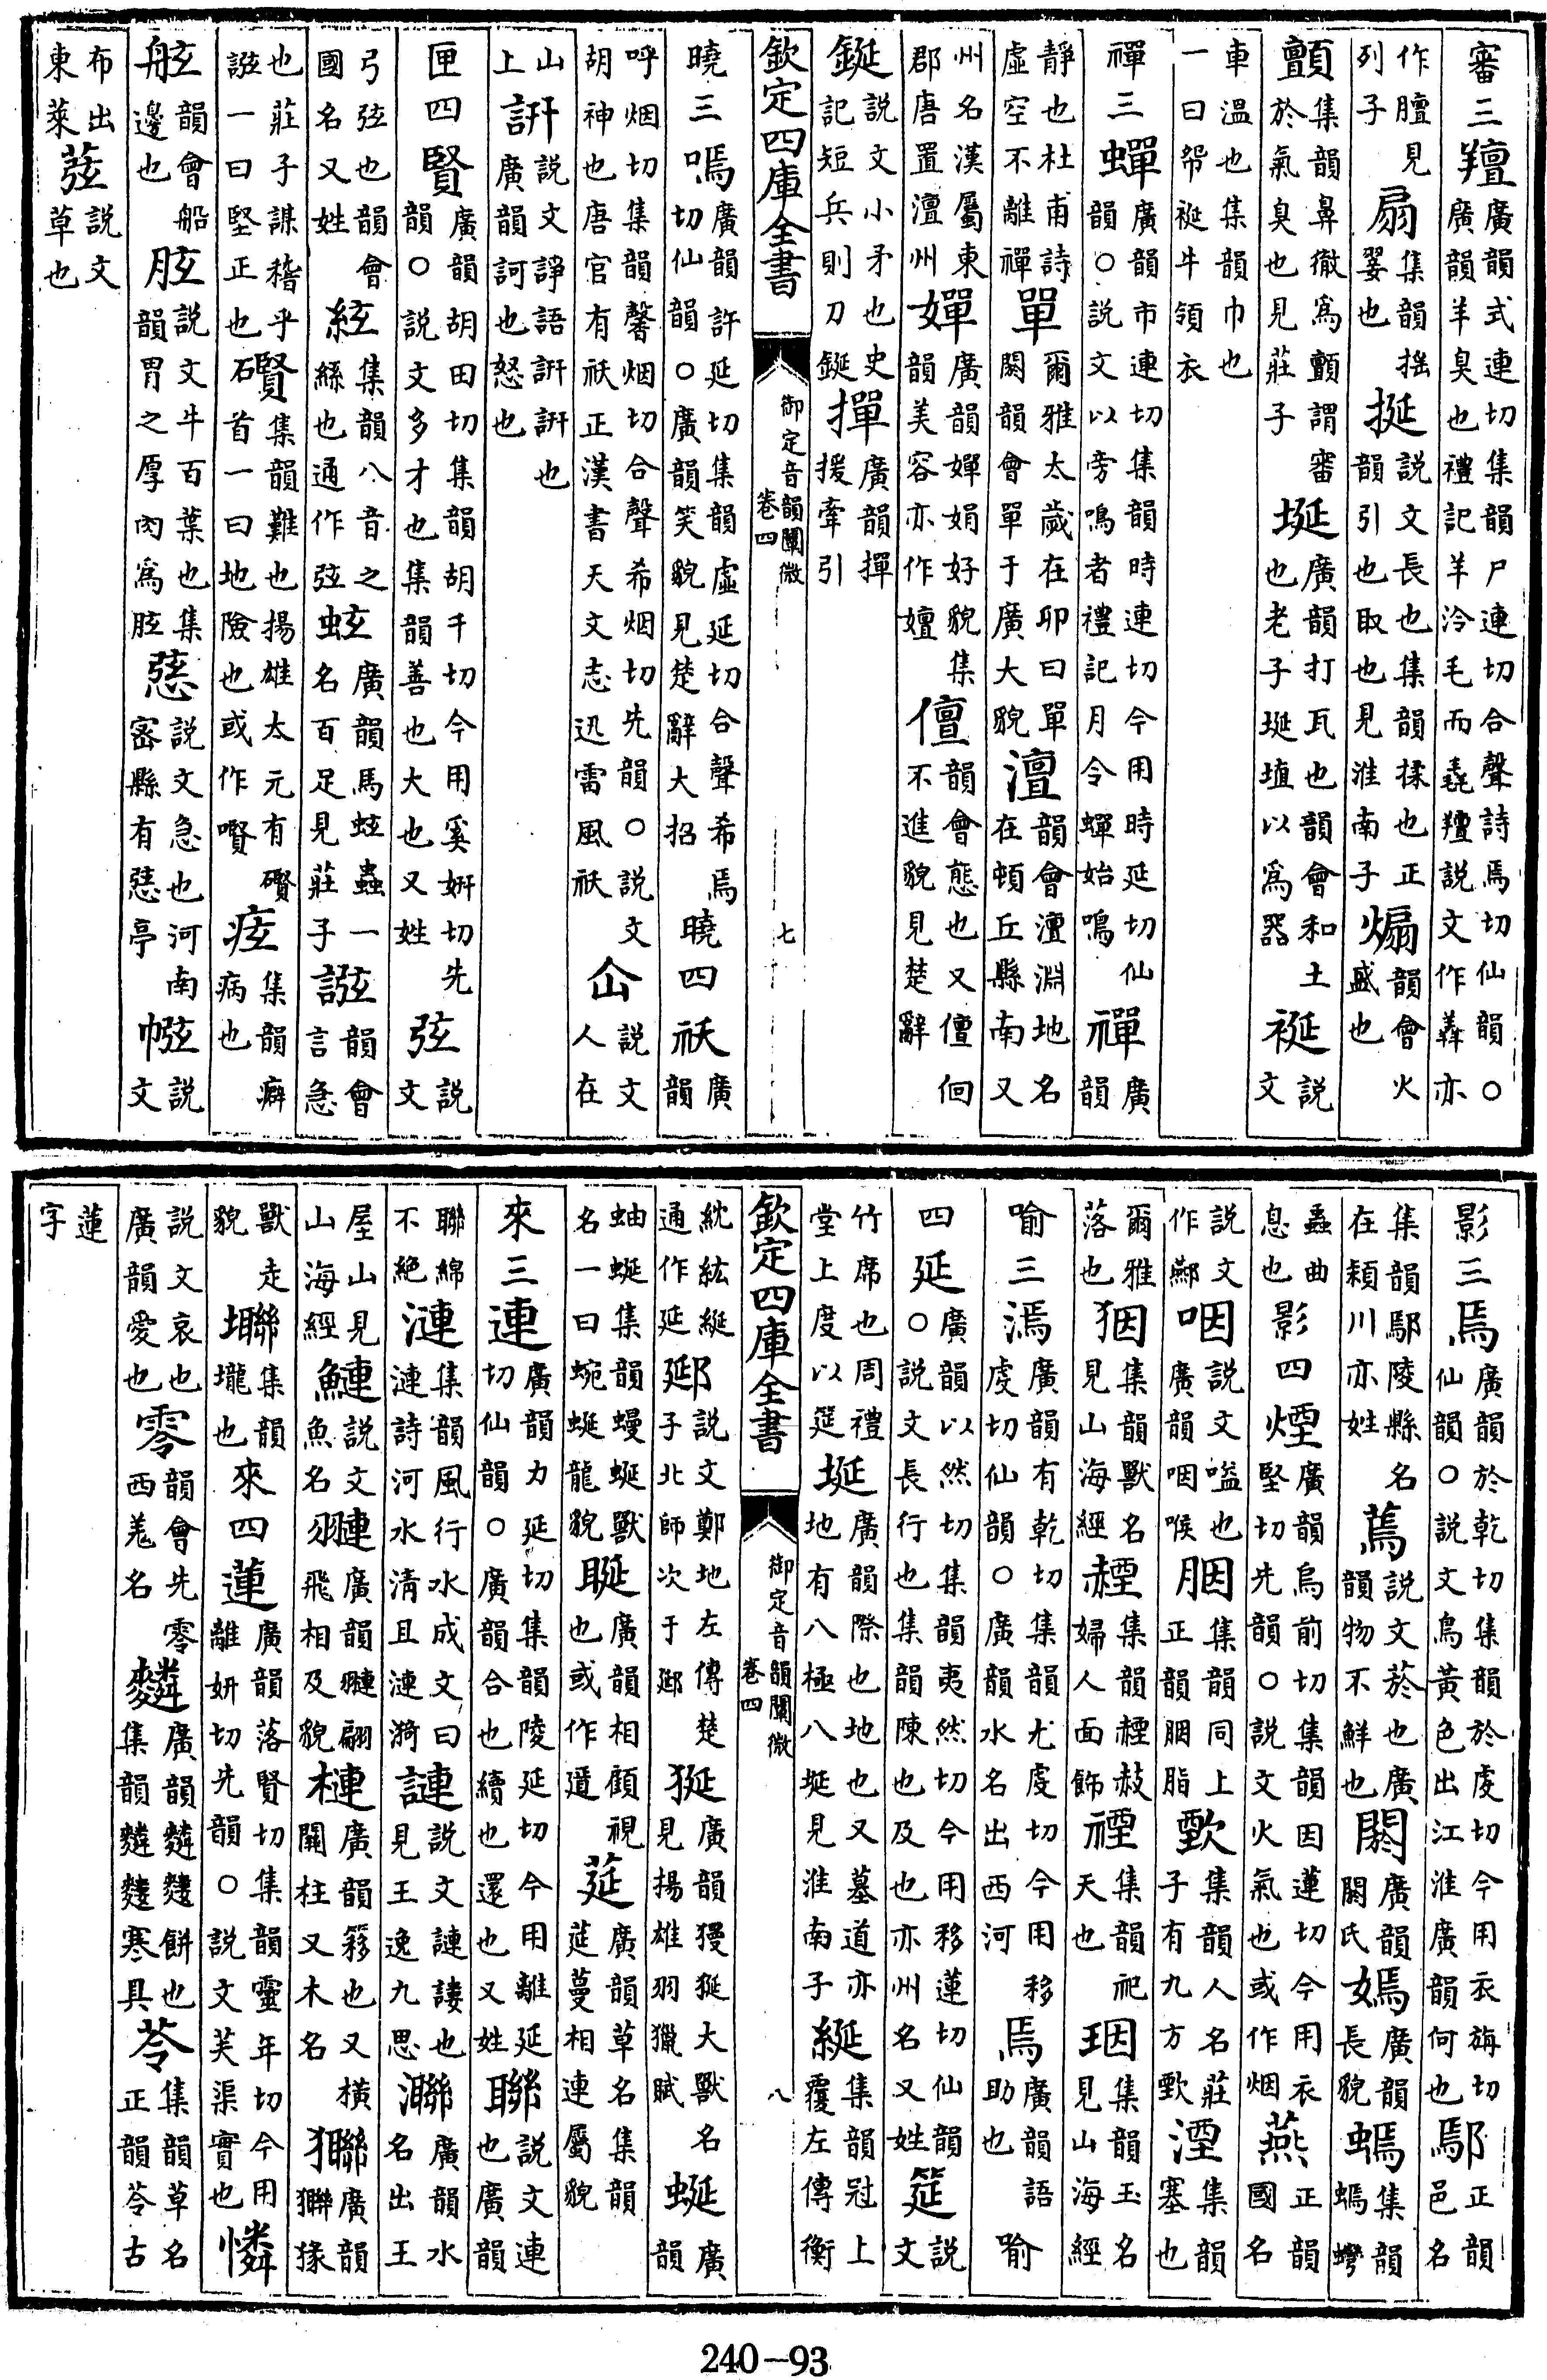 審三羶廣韻式連切集韻尸連切合聲詩焉切仙韻○廣韻羊臭也禮記羊泠毛而毳羶說文作羴亦
作膻見列子扇集韻搖翣也挻說文長也集韻揉也正韻引也取也見淮南子煽韻會火盛也
顫集韻鼻徹爲顫謂審於氣臭也見莊子埏廣韻打瓦也韻會和土也老子埏埴以爲器裖說文
車溫也集韻巾也一曰帤裖牛領衣
禪三蟬廣韻市連切集韻時連切今用時延切仙韻○說文以旁鳴者禮記月令蟬始鳴禪廣韻
靜也杜甫詩虛空不離禪單爾雅太歲在卯曰單閼韻會單于廣大貌澶韻會澶淵地名在頓丘縣南又
州名漢屬東郡唐置澶州嬋廣韻嬋娟好貌集韻美容亦作嬗儃韻會態也又儃佪不進貌見楚辭
鋋說文小矛也史記短兵則刀鋋撣廣韻撣援牽引
欽定四庫全書 御定音韻闡微 卷四 七
曉三嘕廣韻許延切集韻虛延切合聲希焉切仙韻○廣韻笑貌見楚辭大招曉四祅廣韻
呼烟切集韻馨烟切合聲希烟切先韻○說文胡神也唐官有祅正漢書天文志迅雷風祅仚說文人在
山上訮說文諍語訮訮也廣韻訶也怒也
匣四賢廣韻胡田切集韻胡千切今用奚姸切先韻○說文多才也集韻善也大也又姓弦說文
弓弦也韻會國名又姓絃集韻八音之絲也通作弦蚿廣韻馬蚿蟲一名百足見莊子誸韻會言急
也莊子謀稽乎誸一曰堅正也礥集韻難也揚雄太元有礥首一曰地險也或作䝨痃集韻癖病也
舷韻會船邊也胘說文牛百葉也集韻胃之厚肉爲胘慈說文急也河南密縣有慈亭㡉說文
布出東萊䒸說文草也
影三焉廣韻於乾切集韻於虔切今用衣旃切仙韻○說文鳥黃色出江淮廣韻何也鄢正韻邑名
集韻鄢陵縣名在穎川亦姓蔫說文菸也廣韻物不鮮也閼廣韻閼氏嫣廣韻長貌蟡集韻蟡蟃
蟲曲息也影四煙廣韻烏前切集韻因蓮切今用衣烟切先韻○說文火氣也或作烟燕正韻國名
說文作酀咽說文嗌也廣韻咽喉胭集韻同上正韻胭脂歅集韻人名莊子有九方歅湮集韻塞也
爾雅落也㹤集韻獸名見山海經䞁集韻䞁赦婦人面飾禋集韻祀天也珚集韻玉名見山海經
喻三漹廣韻有乾切集韻尤虔切今用移虔切仙韻○廣韻水名出西河焉廣韻語助也喻
四延廣韻以然切集韻夷然切今用移蓮切仙韻○說文長行也集韻陳也及也亦州名又姓筵說文
竹席也周禮堂上度以筵埏廣韻際也地也又墓道亦地有八極八埏見淮南子綖集韻冠上覆左傳衡
欽定四庫全書 御定音韻闡微 卷四 八
紞紘綖通作延郔說文鄭地左傳楚子北師次于郔狿廣韻獌狿大獸名見揚雄羽獵賦蜒廣韻
蚰蜒集韻蟃蜒獸名一曰蜿蜒龍貌䀽廣韻相顧視也或作遃莚廣韻草名集韻莚蔓相連屬貌
來三連廣韻力延切集韻陵延切今用離延切仙韻○廣韻合也續也還也又姓聯說文連也廣韻
聯綿不絕漣集韻風行水成文曰漣詩河水淸且漣漪謰說文謰謱也見王逸九思㶌廣韻水名出王
屋山見山海經鰱說文魚名翴廣韻翴翩飛相及貌槤廣韻簃也又橫關柱又木名㺦廣韻㺦猭
獸走貌壣集韻壠也來四蓮廣韻落賢切集韻靈年切今用離姸切先韻○說文芙渠實也憐
說文哀也廣韻愛也零韻會先零西羌名䴲廣韻䴲䴹餠也集韻䴲䴹寒具苓集韻草名正韻苓古
蓮字
240—93